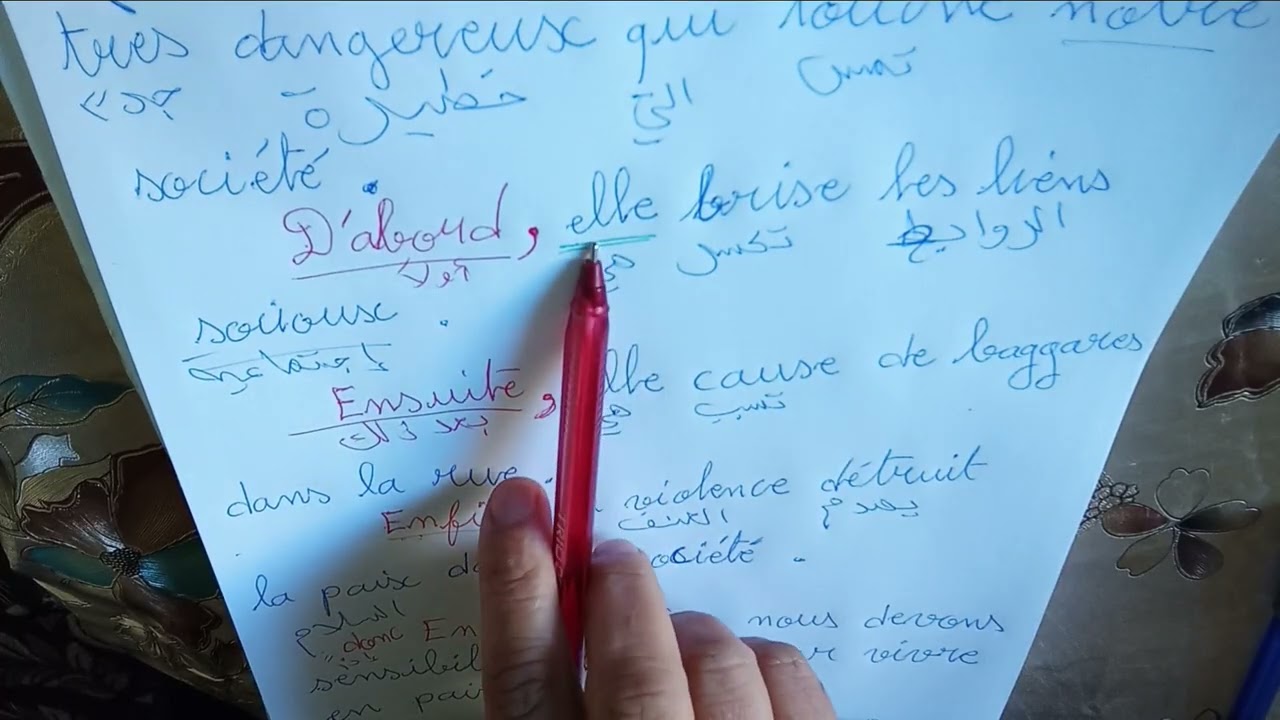 très dangereux qui touche notre
جدا خطيرة التي تمس
société.
D'abord, elle brise les liens
أولا هي تكسر الروابط
sociaux.
إجتماعية
Ensuite, elle cause de baggares
بعد ذلك هي تسبب
dans la rue.
Enfi violence détruit
العنف يهدم
la paix d société.
السلام
donc En nous devons
sensibil r vivre
en pai